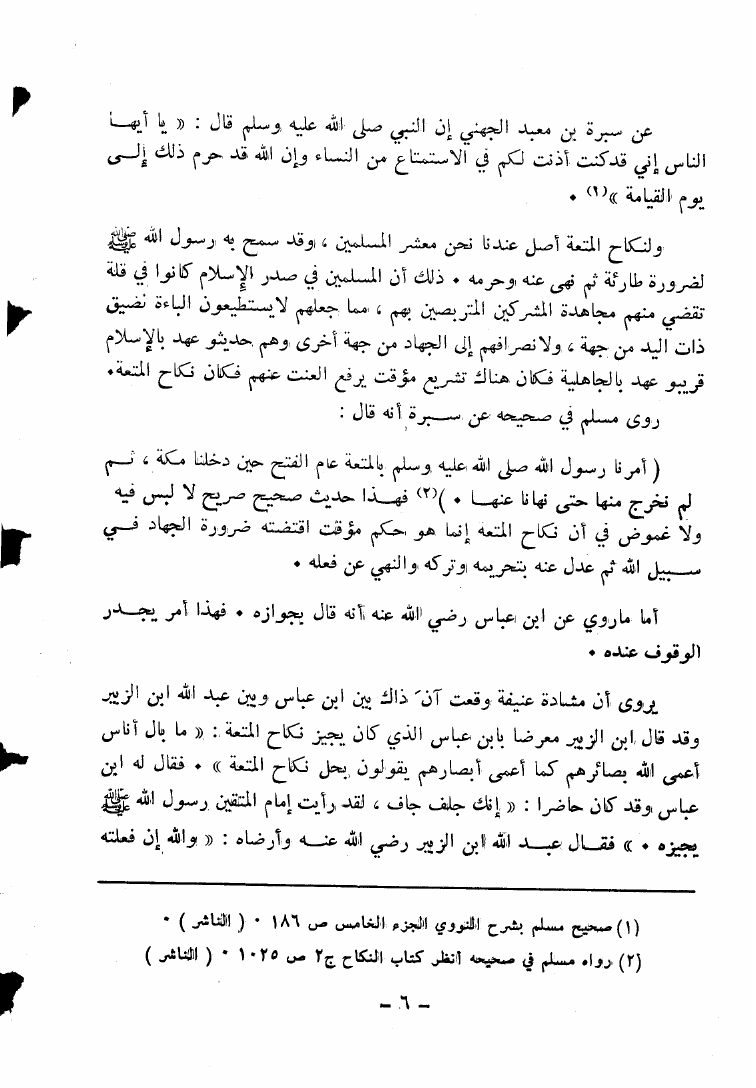 عن سبرة بن معبد الجهني إن النبي صلى الله عليه وسلم قال : « يا أيهـا
الناس إني قدكنت أذنت لكم في الاستمتاع من النساء وإن الله قد حرم ذلك إلـى
يوم القيامة »(١) •
ولنكاح المتعة أصل عندنا نحن معشر المسلمين ، وقد سمح به رسول الله ﷺ
لضرورة طارئة ثم نهى عنه وحرمه • ذلك أن المسلمين في صدر الإسلام كانوا في قلة
تقضي منهم مجاهدة المشركين المتربصين بهم ، مما جعلهم لايستطيعون الباءة نضيق
ذات اليد من جهة ، ولانصرافهم إلى الجهاد من جهة أخرى وهم حديثو عهد بالإسلام
قريبو عهد بالجاهلية فكان هناك تشريع مؤقت يرفع العنت عنهم فكان نكاح المتعة•
روى مسلم في صحيحه عن سـبرة أنه قال :
( أمرنا رسول الله صلى الله عليه وسلم بالمتعة عام الفتح حين دخلنا مكة ، ثـم
لم نخرج منها حتى نهانا عنهـا • )(٢) فهـذا حديث صحيح صريح لا لبس فيه
ولا غموض في أن نكاح المتعه إنما هو حكم مؤقت اقتضته ضرورة الجهاد فـي
سـبيل الله ثم عدل عنه بتحريمه وتركه والنهي عن فعله •
أما ماروي عن ابن عباس رضي الله عنه أنه قال بجوازه • فهذا أمر يجـدر
الوقوف عنده •
يروى أن مشادة عنيفة وقعت آن ذاك بين ابن عباس وبين عبد الله ابن الزبير
وقد قال ابن الزبير معرضا بابن عباس الذي كان يجيز نكاح المتعة : « ما بال أناس
أعمى الله بصائرهم كما أعمى أبصارهم يقولون بحل نكاح المتعة » • فقال له ابن
عباس وقد كان حاضرا : « إنك جلف جاف ، لقد رأيت إمام المتقين رسول الله ﷺ
يجيزه • » فقـال عبـد الله ابن الزبير رضي الله عنـه وأرضاه : « والله إن فعلته
(١) صحيح مسلم بشرح النووي الجزء الخامس ص ١٨٦ • ( الناشر ) •
(٢) رواه مسلم في صحيحه أنظر كتاب النكاح ج٢ ص ١٠٢٥ • ( الناشر )
– ٦ –